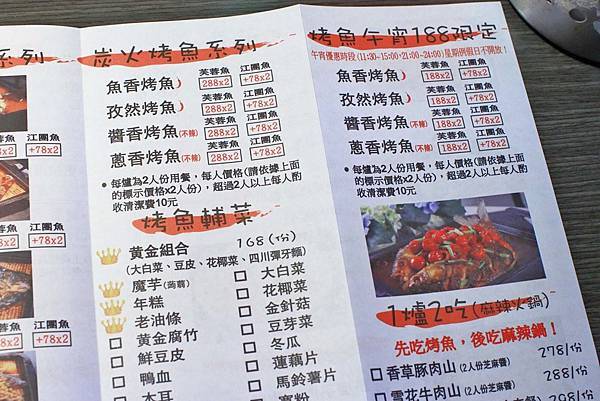 系列
江團魚
+78x2
江團魚
+78x2
江團魚
+78x2
芙蓉魚
江團魚
+78x2
炭火烤魚系列
芙蓉魚 江團魚
魚香烤魚 288x2 +78x2
芙蓉魚 江團魚
孜然烤魚 288x2 +78x2
芙蓉魚 江團魚
醬香烤魚(不辣) 288x2 +78x2
芙蓉魚 江團魚
蔥香烤魚(不辣) 288x2 +78x2
• 每爐為2人份用餐，每人價格(請依據上面
的標示價格x2人份)，超過2人以上每人酌
收清潔費10元
烤魚輔菜
黃金組合 168(份)
(大白菜、豆皮、花椰菜、四川彈牙麵)
魔芋(蒟蒻)
年糕
老油條
黃金腐竹
鮮豆皮
鴨血
木耳
大白菜
花椰菜
金針菇
豆芽菜
冬瓜
蓮藕片
馬鈴薯片
寬粉
烤魚午宵188限定
午宵優惠時段(11:30~15:00，21:00~24:00)星期例假日不開放！
芙蓉魚 江團魚
魚香烤魚 188x2 +78x2
芙蓉魚 江團魚
孜然烤魚 188x2 +78x2
芙蓉魚 江團魚
醬香烤魚(不辣) 188x2 +78x2
芙蓉魚 江團魚
蔥香烤魚(不辣) 188x2 +78x2
• 每爐為2人份用餐，每人價格(請依據上面
的標示價格x2人份)，超過2人以上每人酌
收清潔費10元
1爐2吃(麻辣火鍋)
先吃烤魚，後吃麻辣鍋！
香草豚肉山(2人份芝麻醬) 278/份
雪花牛肉山(2人份芝麻醬) 288/份
298/份